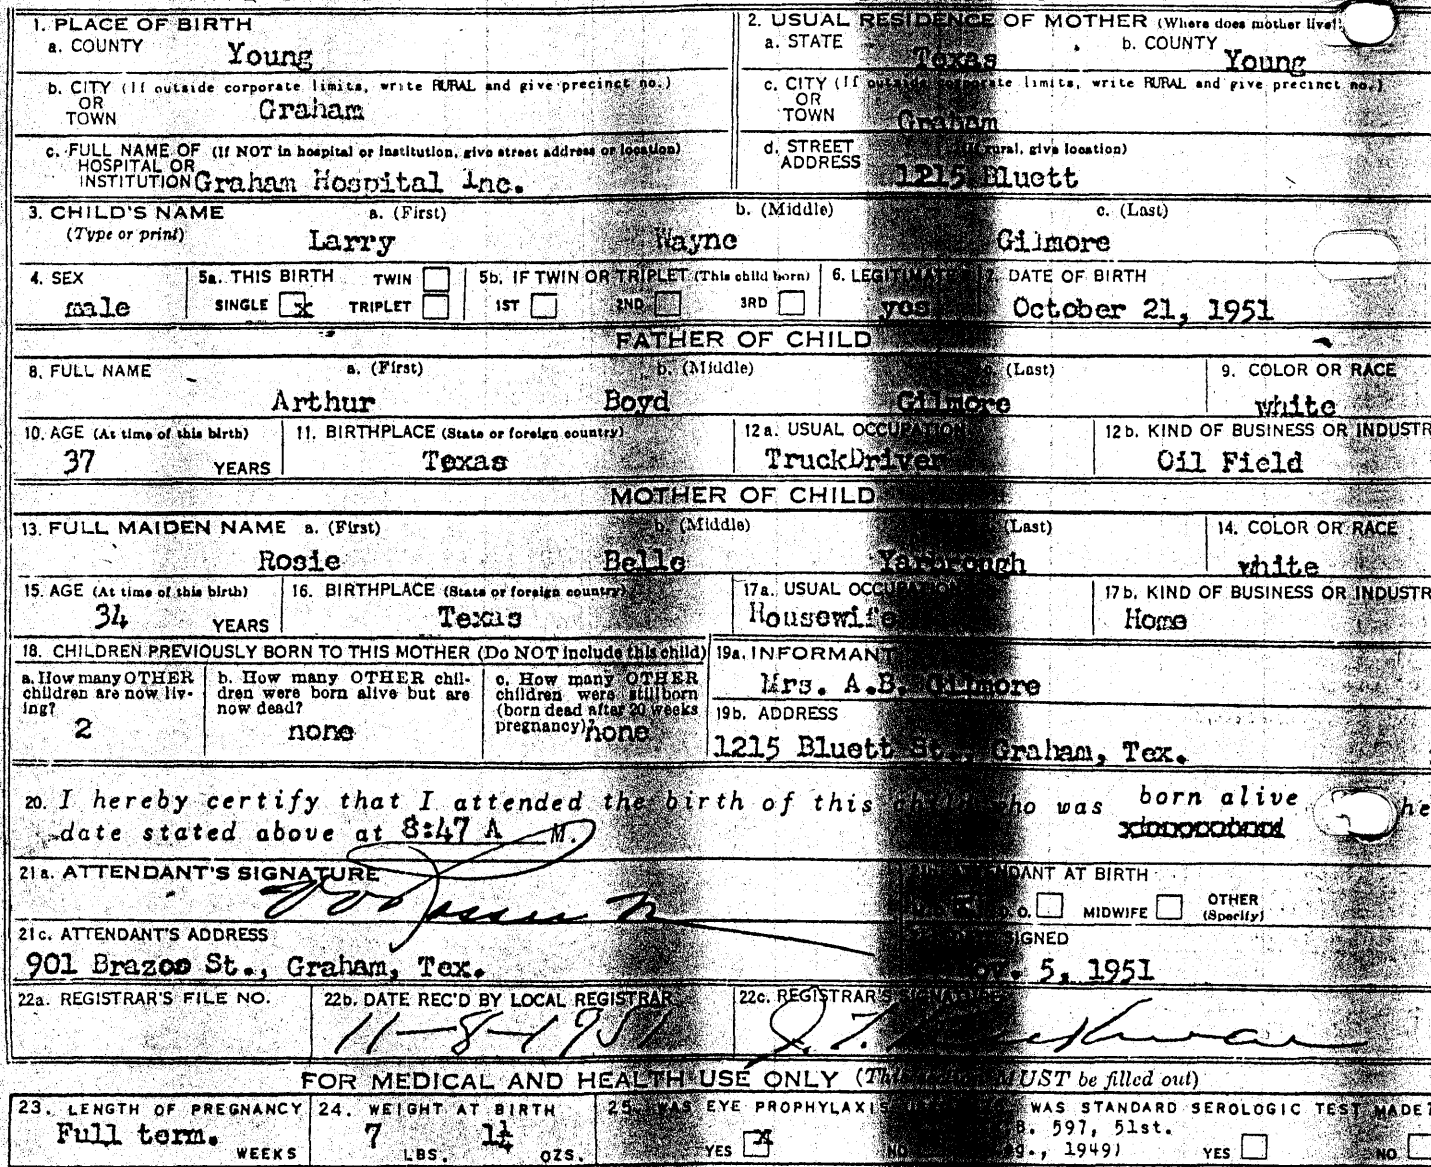 1. PLACE OF BIRTH
a. COUNTY Young
b. CITY (If outside corporate limits, write RURAL and give precinct no.)
OR
TOWN Graham
c. FULL NAME OF (If NOT in hospital or institution, give street address or location)
HOSPITAL OR
INSTITUTION Graham Hospital Inc.
2. USUAL RESIDENCE OF MOTHER (Where does mother live?)
a. STATE Texas b. COUNTY Young
c. CITY (If outside corporate limits, write RURAL and give precinct no.)
OR
TOWN Graham
d. STREET (If rural, give location)
ADDRESS 1215 Bluett
3. CHILD'S NAME a. (First) b. (Middle) c. (Last)
(Type or print) Larry Wayne Gilmore
4. SEX male
5a. THIS BIRTH TWIN
SINGLE x TRIPLET
5b. IF TWIN OR TRIPLET (This child born)
1ST 2ND 3RD
6. LEGITIMATE yes
7. DATE OF BIRTH
October 21, 1951
FATHER OF CHILD
8. FULL NAME a. (First) b. (Middle) (Last) 9. COLOR OR RACE
Arthur Boyd Gilmore white
10. AGE (At time of this birth) 11. BIRTHPLACE (State or foreign country) 12a. USUAL OCCUPATION 12b. KIND OF BUSINESS OR INDUSTR
37 YEARS Texas TruckDriver Oil Field
MOTHER OF CHILD
13. FULL MAIDEN NAME a. (First) b. (Middle) (Last) 14. COLOR OR RACE
Rosie Belle Yarbrough white
15. AGE (At time of this birth) 16. BIRTHPLACE (State or foreign country) 17a. USUAL OCCUPATION 17b. KIND OF BUSINESS OR INDUSTR
34 YEARS Texas Housewife Home
18. CHILDREN PREVIOUSLY BORN TO THIS MOTHER (Do NOT include this child)
a. How many OTHER
children are now liv-
ing?
2
b. How many OTHER chil-
dren were born alive but are
now dead?
none
c. How many OTHER
children were stillborn
(born dead after 20 weeks
pregnancy)? none
19a. INFORMANT
Mrs. A.B. Gilmore
19b. ADDRESS
1215 Bluett St., Graham, Tex.
20. I hereby certify that I attended the birth of this child who was born alive he
date stated above at 8:47 A M.
21a. ATTENDANT'S SIGNATURE
ATTENDANT AT BIRTH
D.O. MIDWIFE OTHER
(Specify)
21c. ATTENDANT'S ADDRESS
901 Brazos St., Graham, Tex.
SIGNED
Nov. 5, 1951
22a. REGISTRAR'S FILE NO. 22b. DATE REC'D BY LOCAL REGISTRAR 22c. REGISTRAR'S SIGNATURE
11-8-1951
FOR MEDICAL AND HEALTH USE ONLY (This MUST be filled out)
23. LENGTH OF PREGNANCY
Full term.
WEEKS
24. WEIGHT AT BIRTH
7 LBS. 1¼ OZS.
25. WAS EYE PROPHYLAXIS
YES x NO
WAS STANDARD SEROLOGIC TEST MADE?
B. 597, 51st.
1949)
YES NO